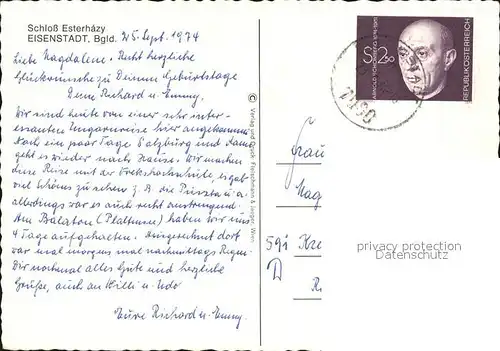 Schloß Esterházy
EISENSTADT, Bgld.
25. Sept. 1974
Liebe Magdalene. Recht herzliche
Glückwünsche zu Deinem Geburtstage
Deine Richard u. Emmy.
Wir sind heute von einer sehr inter-
essanten Ungarnreise hier angekommen
Noch ein paar Tage Salzburg und dann
geht es wieder nach Hause. Wir machen
diese Reise mit der Volkshochschule, es gab
viel Schönes zu sehen z. B. die Puszta u. a.
allerdings war es auch recht anstrengend.
Am Balaton (Plattensee) haben wir uns
4 Tage aufgehalten. Ausgerechnet dort
war mal morgens mal nachmittags Regen.
Dir nochmal alles Gute und herzliche
Grüße, auch an Willi u. Udo
Eure Richard u. Emmy.
© Verlag und Druck
Wien.
S 2.50
ARNOLD SCHÖNBERG 1874-1951
REPUBLIK ÖSTERREICH
7090
Frau
Mag
591 Kre
D
privacy protection
Datenschutz